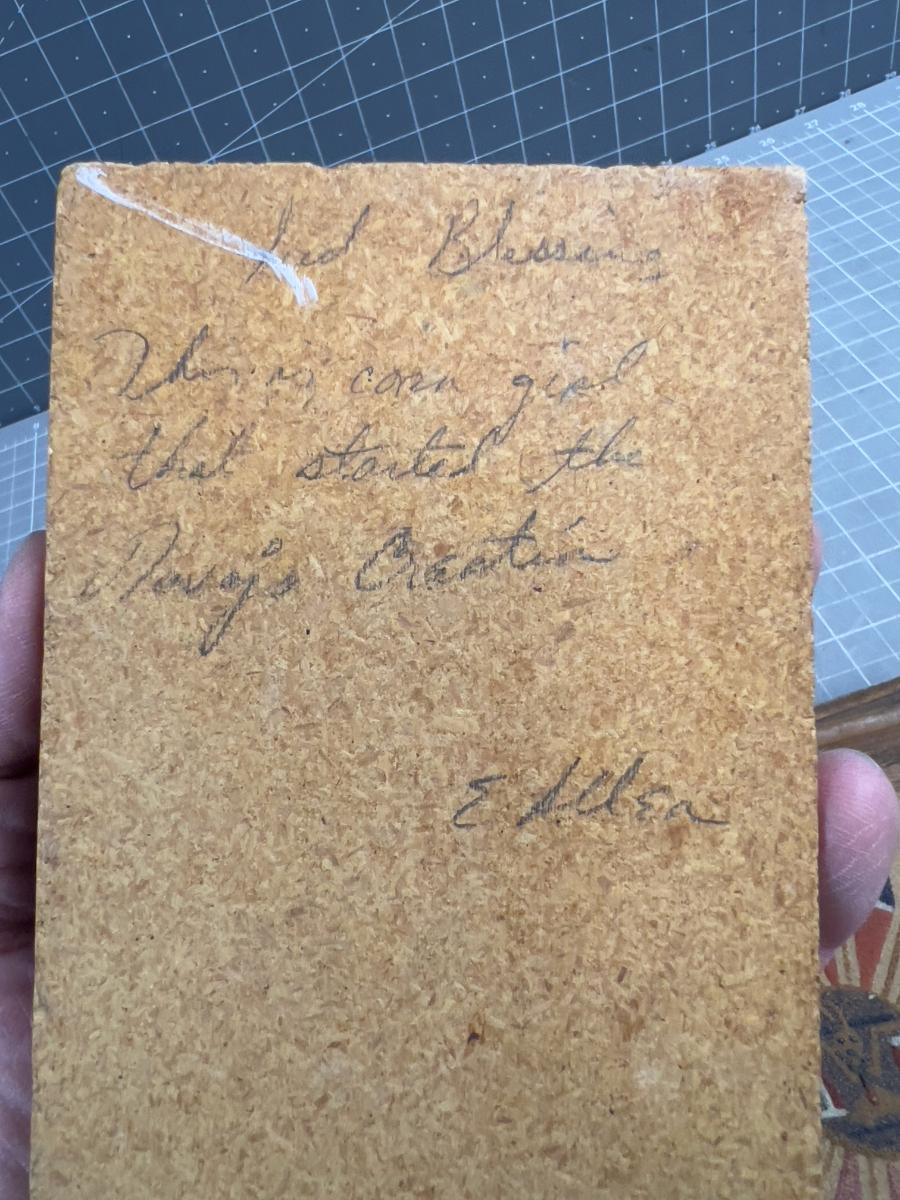 Blessing
This is corn girl
that started the
Navajo Creation
E Allen
25 26 27 28